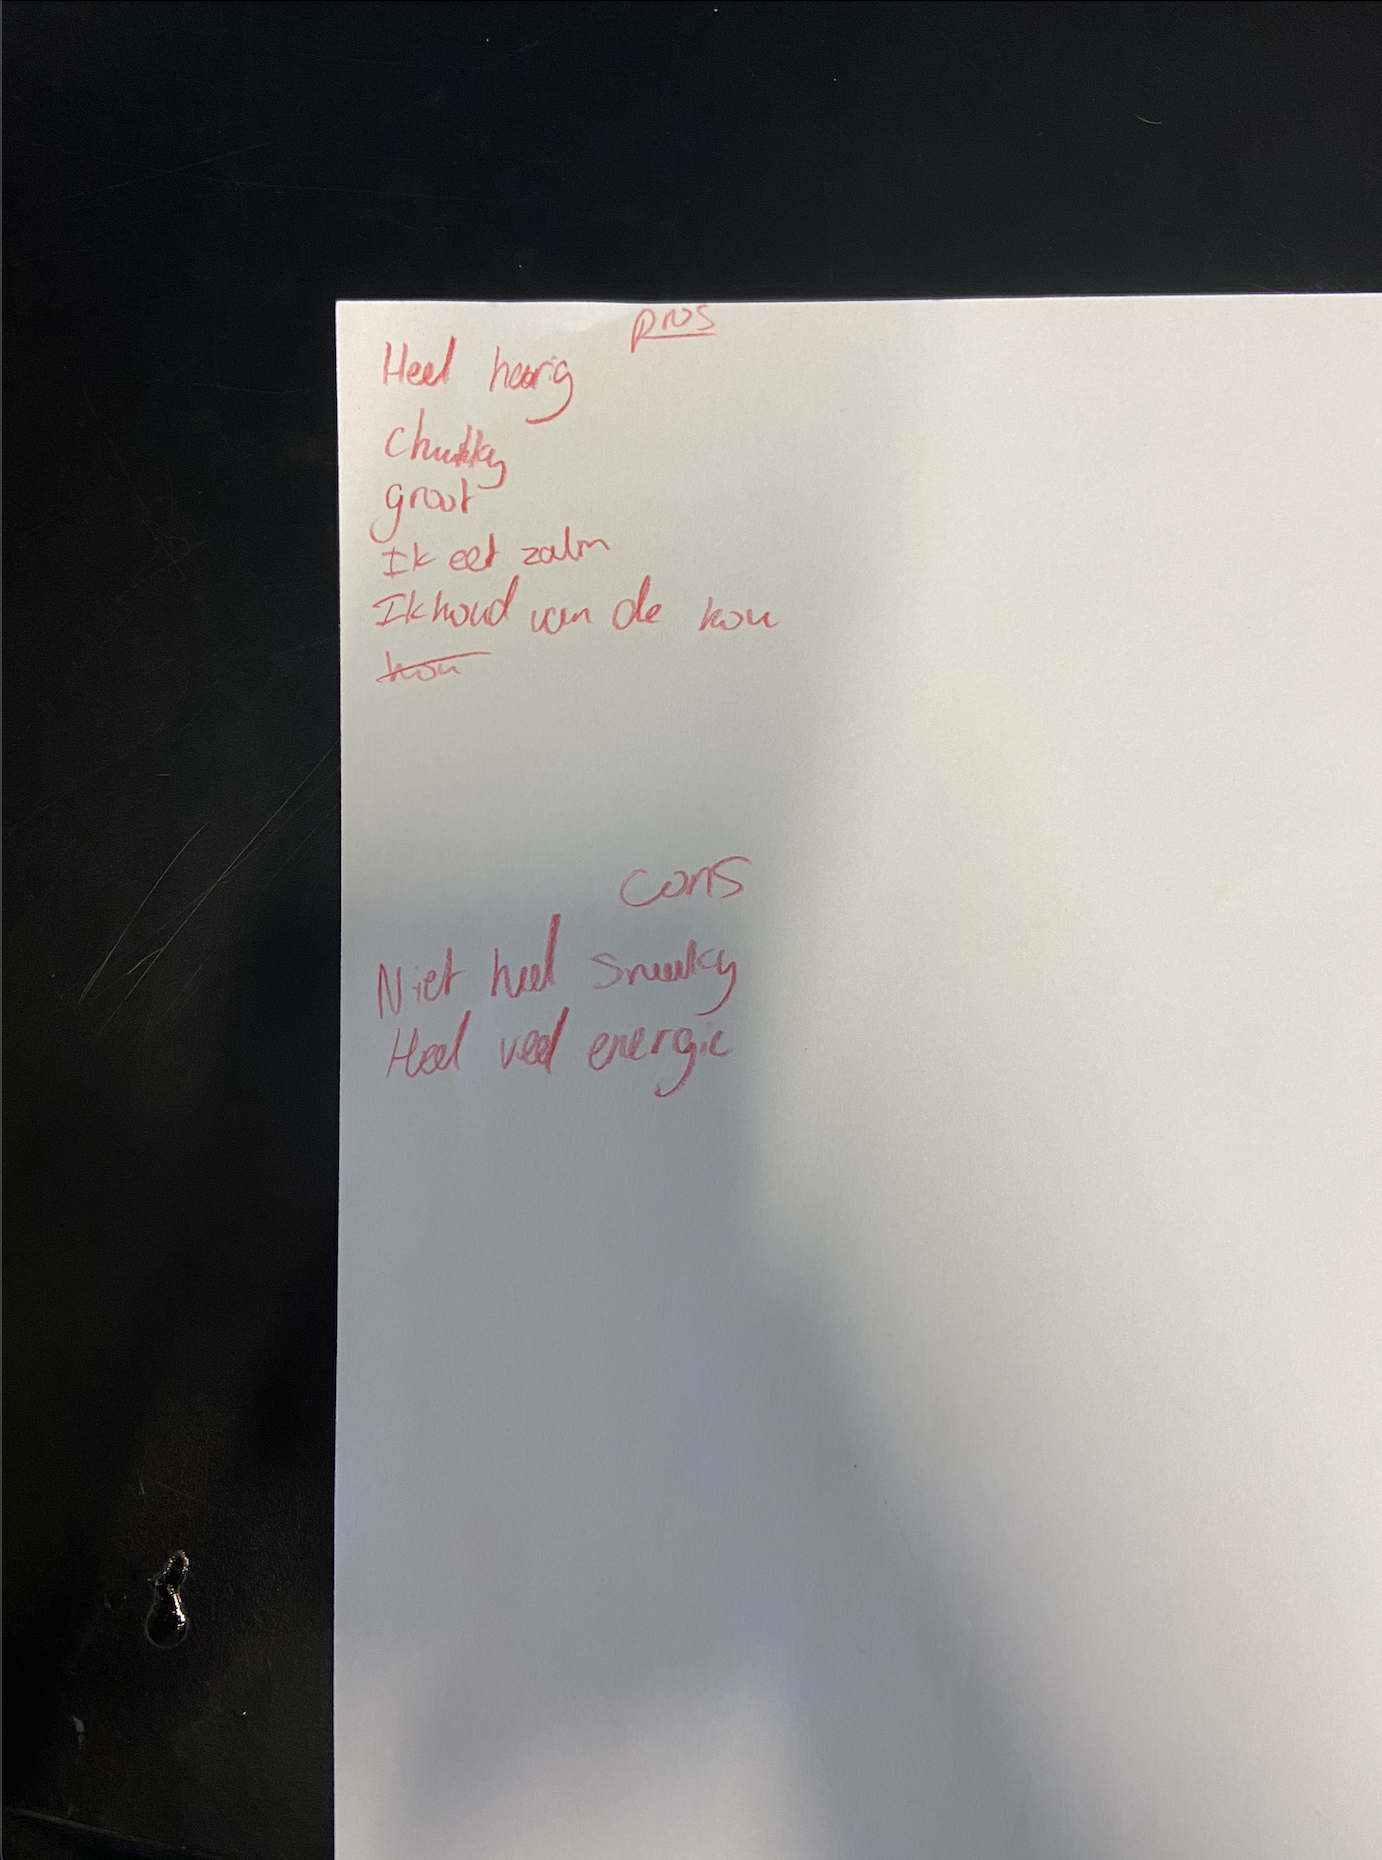 pros
Heel harig
Chunky
groot
Ik eet zalm
Ik houd van de kou
kou
cons
Niet heel sneaky
Heel veel energie